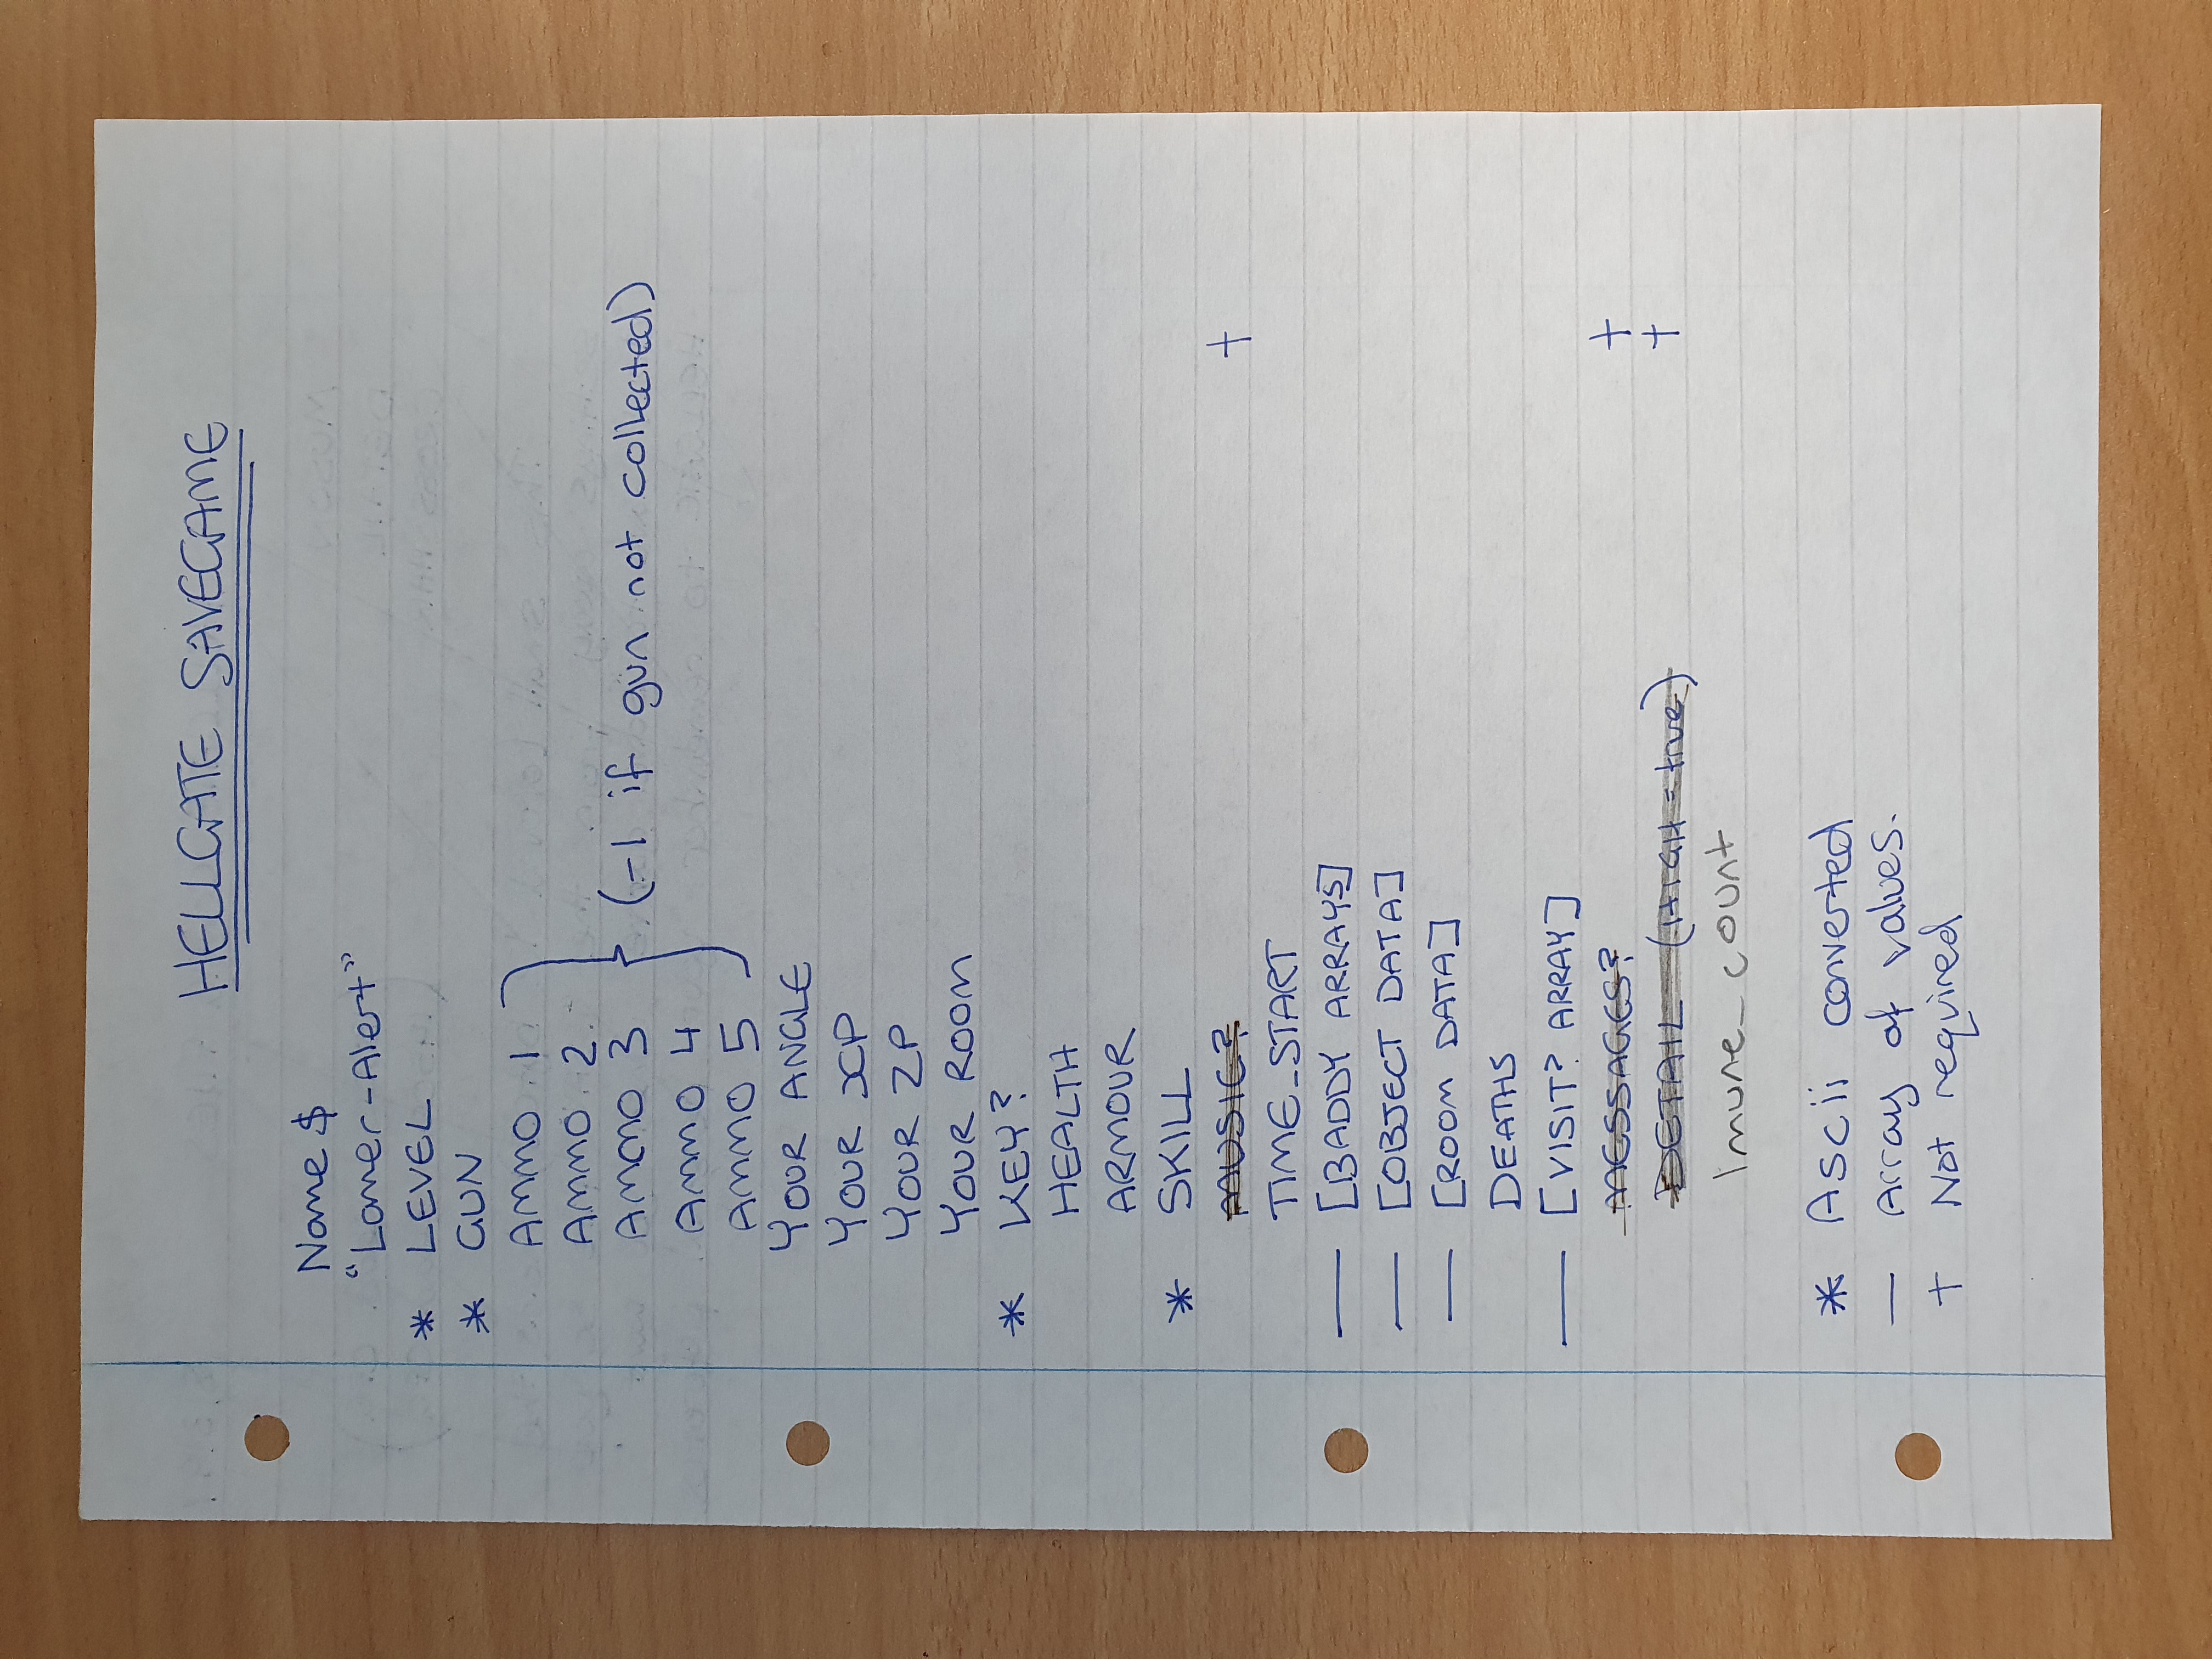 HELLGATE SAVEGAME
Name $
"Lamer-Alert"
* LEVEL
* GUN
AMMO 1
AMMO 2
AMMO 3 (-1 if gun not collected)
AMMO 4
AMMO 5
YOUR ANGLE
YOUR XP
YOUR ZP
YOUR ROOM
* KEY?
HEALTH
ARMOUR
* SKILL
MUSIC? †
TIME_START
— [BADDY ARRAYS]
— [OBJECT DATA]
— [ROOM DATA]
DEATHS
— [VISIT? ARRAY]
MESSAGES? †
DETAIL (HIGH = true) †
Imune_count
* Ascii converted
— Array of values.
† Not required